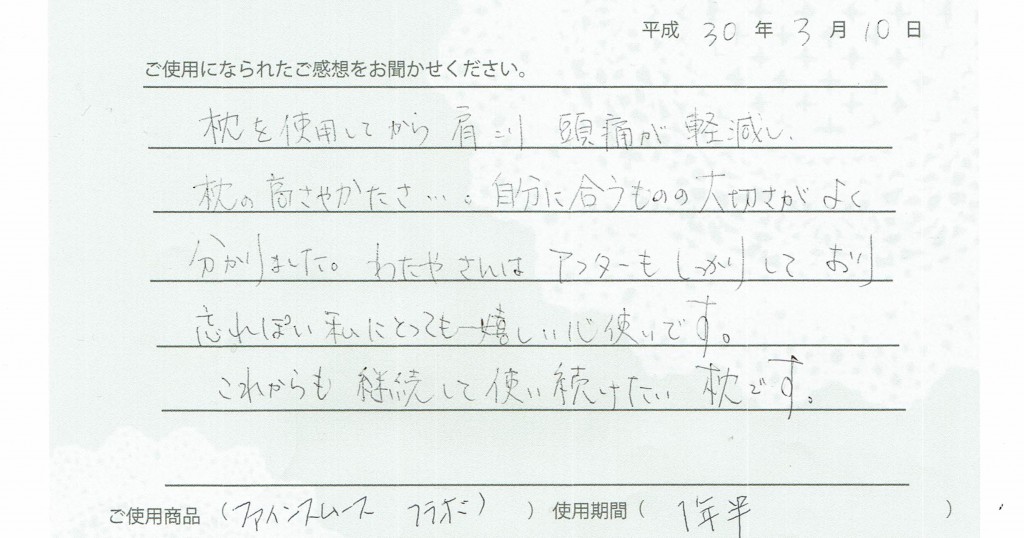 平成 30 年 3 月 10 日
ご使用になられたご感想をお聞かせください。
枕を使用してから 肩こり 頭痛が 軽減し、
枕の高さやかたさ…。自分に合うものの大切さがよく
分かりました。わたやさんは アフターも しっかりして おり
忘れぽい 私にとっても 嬉しい心使いです。
これからも 継続して使い続けたい 枕です。
ご使用商品 (ファインスムース フラボニ) ) 使用期間 ( 1年半 )